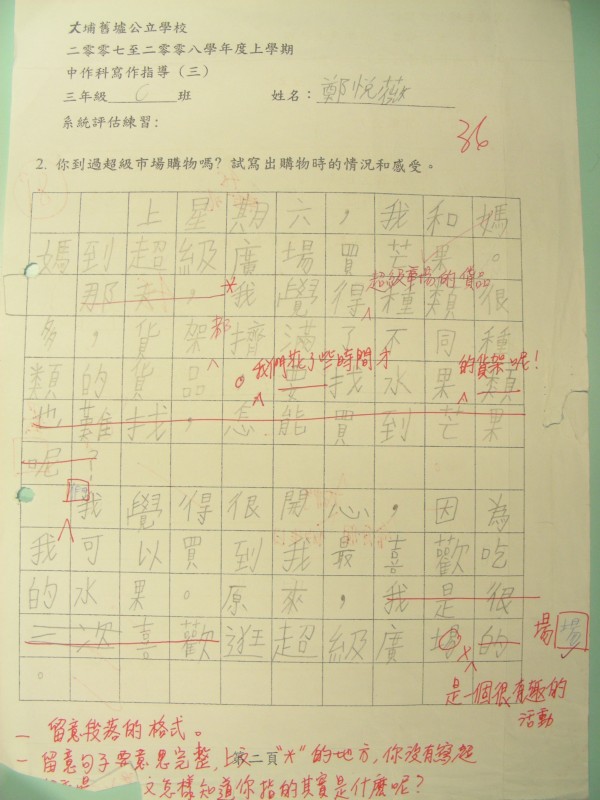 大埔舊墟公立學校
二零零七至二零零八學年度上學期
中作科寫作指導（三）
三年級 C 班 姓名：鄭悅薇
系統評估練習：
36
2. 你到過超級市場購物嗎？試寫出購物時的情況和感受。
上星期六，我和媽
媽到超級廣場買芒果。
那天，我覺得種類很
超級市場的貨品
多，貨架擠滿了不同種
都
類的貨品 要找水果類
。我們花了些時間才
的貨架呢！
難找，怎能買到芒果
呢？
我覺得很開心，因為
我可以買到我最喜歡吃
的水果。原來，我是很
喜歡逛超級廣場的
場 場
。
是一個很有趣的
活動
一 留意段落的格式。
第二頁
一 留意句子要意思完整，上文"*"的地方，你沒有寫超
文怎樣知道你指的其實是什麼呢？